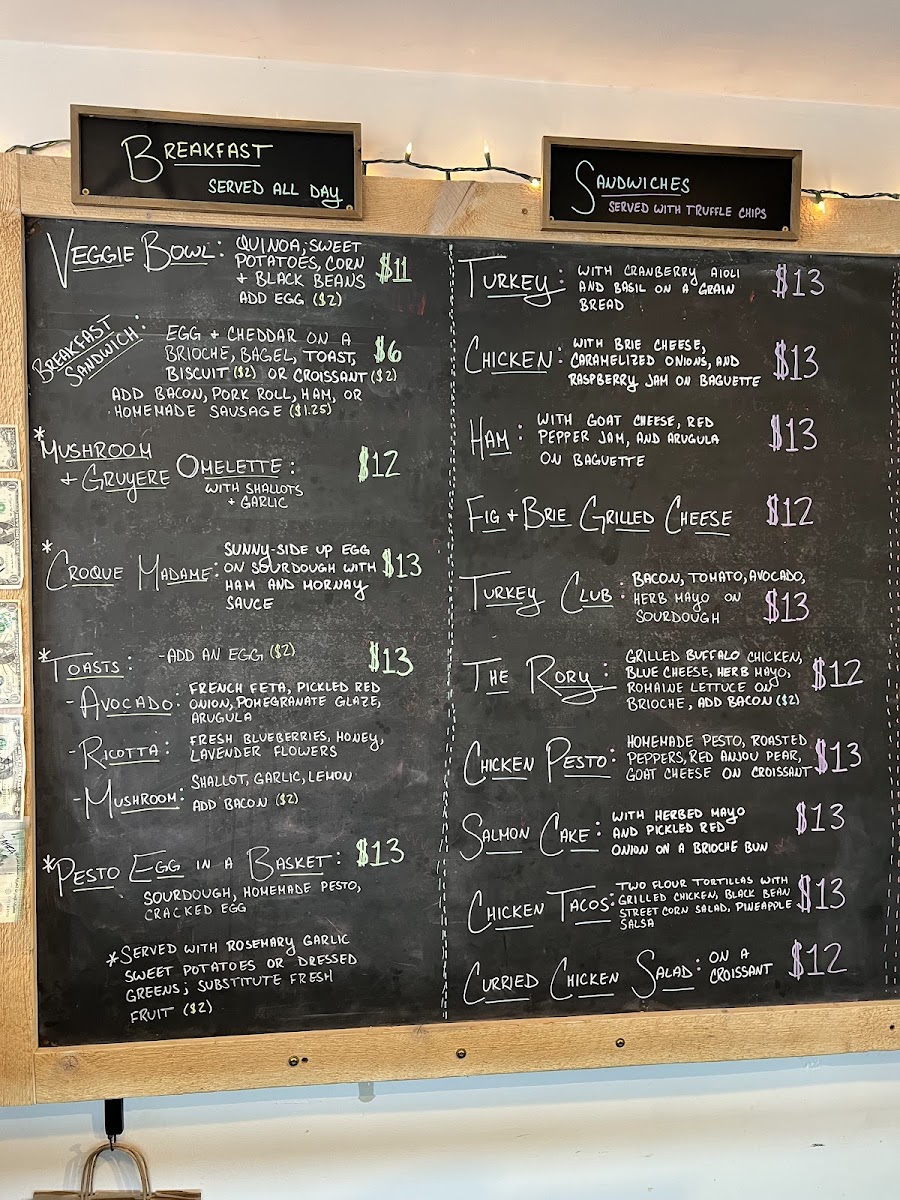 BREAKFAST
SERVED ALL DAY
VEGGIE BOWL: QUINOA, SWEET
POTATOES, CORN
+ BLACK BEANS $11
ADD EGG ($2)
BREAKFAST
SANDWICH:
EGG + CHEDDAR ON A
BRIOCHE, BAGEL, TOAST, $6
BISCUIT ($2) OR CROISSANT ($2)
ADD BACON, PORK ROLL, HAM, OR
HOMEMADE SAUSAGE ($1.25)
*MUSHROOM
+ GRUYERE OMELETTE: $12
WITH SHALLOTS
+ GARLIC
*CROQUE MADAME: SUNNY-SIDE UP EGG
ON SOURDOUGH WITH $13
HAM AND MORNAY
SAUCE
*TOASTS: -ADD AN EGG ($2) $13
-AVOCADO: FRENCH FETA, PICKLED RED
ONION, POMEGRANATE GLAZE,
ARUGULA
-RICOTTA: FRESH BLUEBERRIES, HONEY,
LAVENDER FLOWERS
-MUSHROOM: SHALLOT, GARLIC, LEMON
ADD BACON ($2)
*PESTO EGG IN A BASKET: $13
SOURDOUGH, HOMEMADE PESTO,
CRACKED EGG
*SERVED WITH ROSEMARY GARLIC
SWEET POTATOES OR DRESSED
GREENS; SUBSTITUTE FRESH
FRUIT ($2)
SANDWICHES
SERVED WITH TRUFFLE CHIPS
TURKEY: WITH CRANBERRY AIOLI $13
AND BASIL ON A GRAIN
BREAD
CHICKEN: WITH BRIE CHEESE,
CARAMELIZED ONIONS, AND $13
RASPBERRY JAM ON BAGUETTE
HAM: WITH GOAT CHEESE, RED
PEPPER JAM, AND ARUGULA $13
ON BAGUETTE
FIG + BRIE GRILLED CHEESE $12
TURKEY CLUB: BACON, TOMATO, AVOCADO,
HERB MAYO ON
SOURDOUGH $13
THE RORY: GRILLED BUFFALO CHICKEN,
BLUE CHEESE, HERB MAYO, $12
ROMAINE LETTUCE ON
BRIOCHE, ADD BACON ($2)
CHICKEN PESTO: HOMEMADE PESTO, ROASTED
PEPPERS, RED ANJOU PEAR, $13
GOAT CHEESE ON CROISSANT
SALMON CAKE: WITH HERBED MAYO $13
AND PICKLED RED
ONION ON A BRIOCHE BUN
CHICKEN TACOS: TWO FLOUR TORTILLAS WITH
GRILLED CHICKEN, BLACK BEAN $13
STREET CORN SALAD, PINEAPPLE
SALSA
CURRIED CHICKEN SALAD: ON A
CROISSANT $12